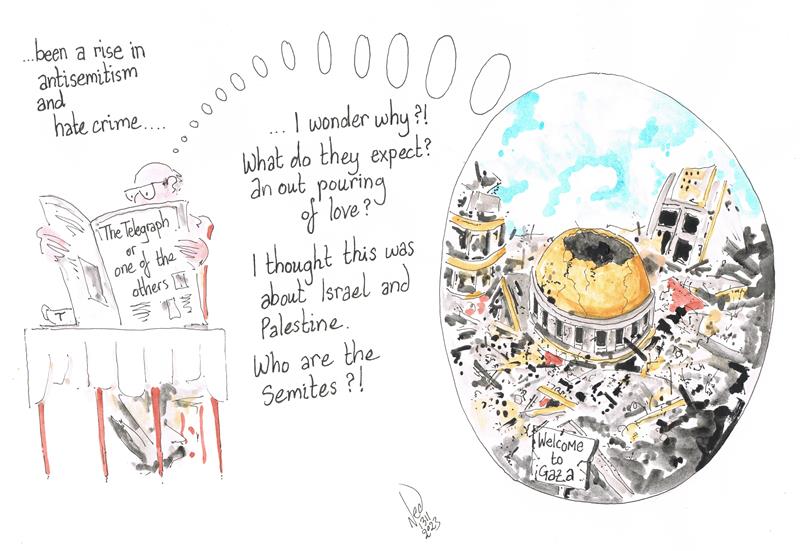 ...been a rise in
antisemitism
and
hate crime....
... I wonder why?!
What do they expect?
an out pouring
of love?
I thought this was
about Israel and
Palestine.
Who are the
Semites?!
The Telegraph
or
one of the
others
T
Welcome
to
Gaza
2023